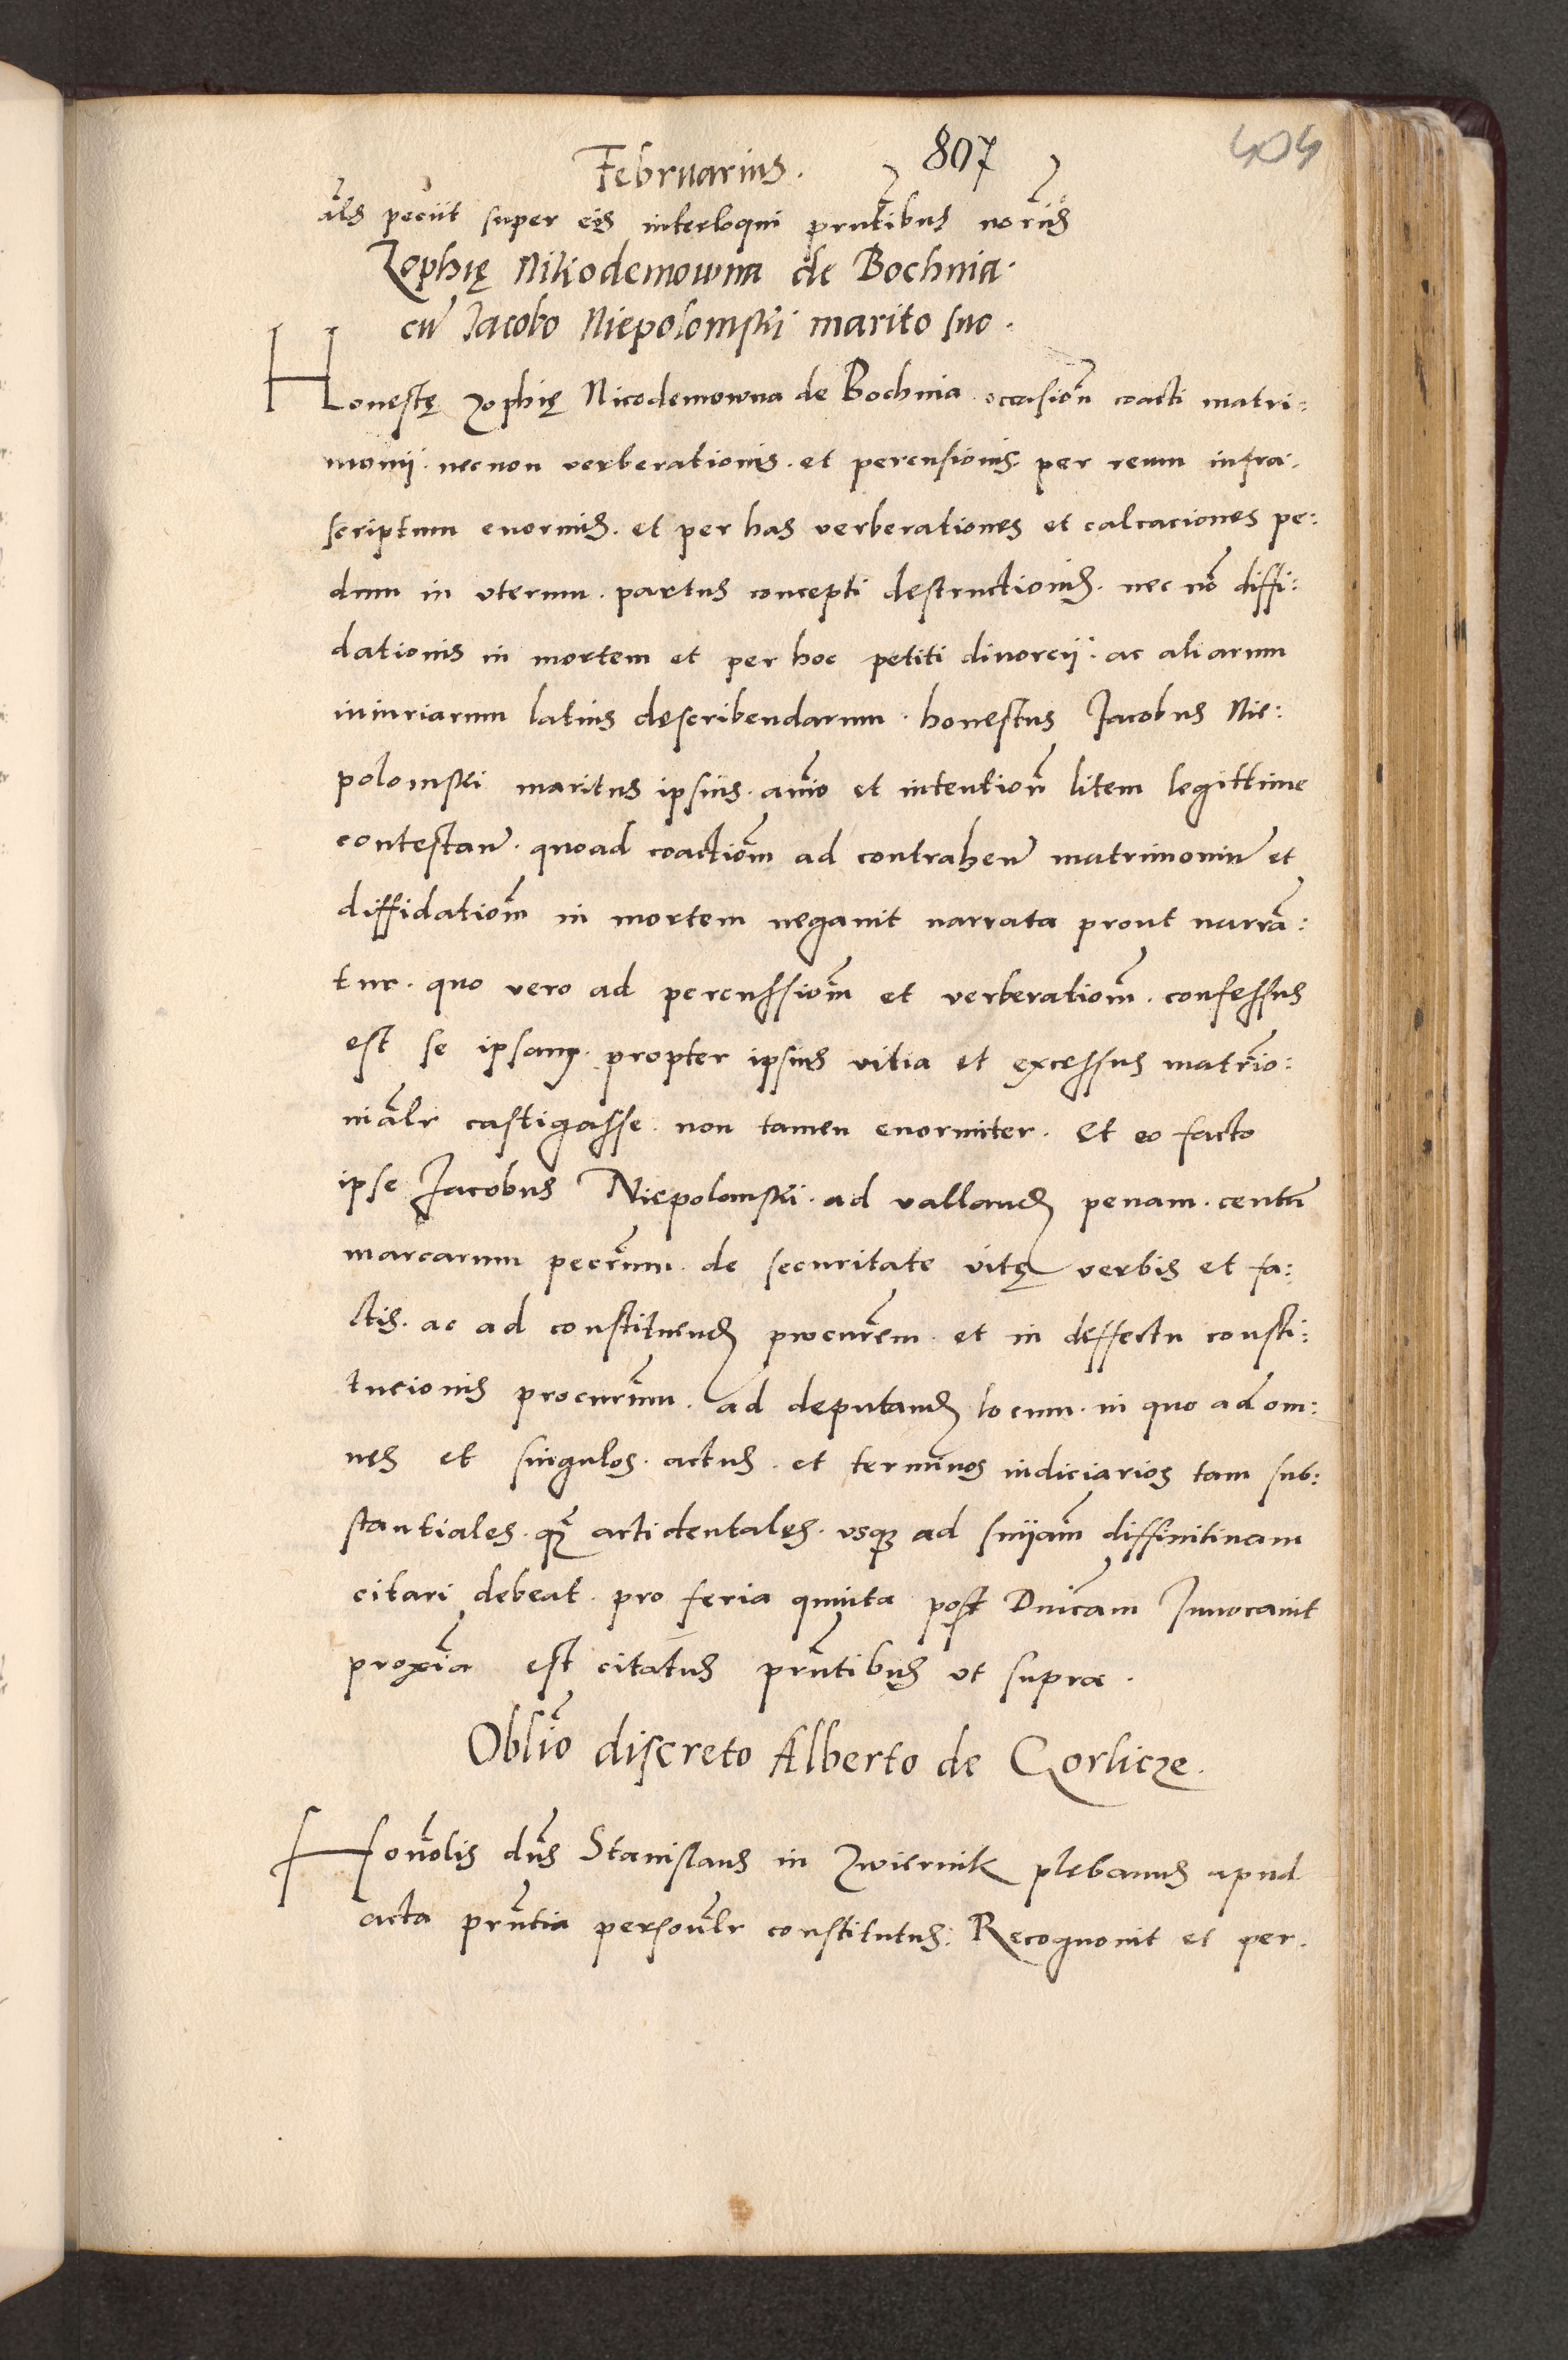 Februarius. 807 404
als peciit super eis interloqui prntibus notariis
Zophię Nikodemowna de Bochnia.
cu Jacobo Niepolomski marito suo.
Honestę Zophię Nicodemowna de Bochnia occasion coacti matri:
monii. necnon verberationis. et percusionis. per reum infra.
scriptum enormis. et per has verberationes et calcaciones pe:
dum in uterum. partus concepti destructionis. nec no diffi:
dationis in mortem et per hoc petiti divorcii. ac aliarum
iniuriarum latius describendarum. honestus Jacobus Nie:
polomski maritus ipsius. animo et intention litem legittime
contestan. quoad coactiom ad contrahen matrimoniu et
diffidatiom in mortem negavit narrata prout narra:
tur. quo vero ad percussiom et verberatiom. confessus
est se ipsam. propter ipsius vitia et excessus matrio:
nialr castigasse. non tamen enormiter. Et eo facto
ipse Jacobus Niepolomski. ad valland penam. centu
marcarum pecrium. de securitate vitę verbis et fa:
ctis. ac ad constituend procurem. et in deffectu consti:
tucionis procurimu. ad deputand locum. in quo ad om:
nes et singulos. actus. et terminos iudiciarios tam sub:
stantiales. q accidentales. usq ad sniiam diffinitivam
citari debeat. pro feria quinta post Dnicam Invocavit
proxia est citatus prntibus ut supra.
Oblio discreto Alberto de Gorlicze.
Honolis dns Stanislaus in Zwiernik plebanus apud
acta prntia personlr constitutus: Recognovit et per.